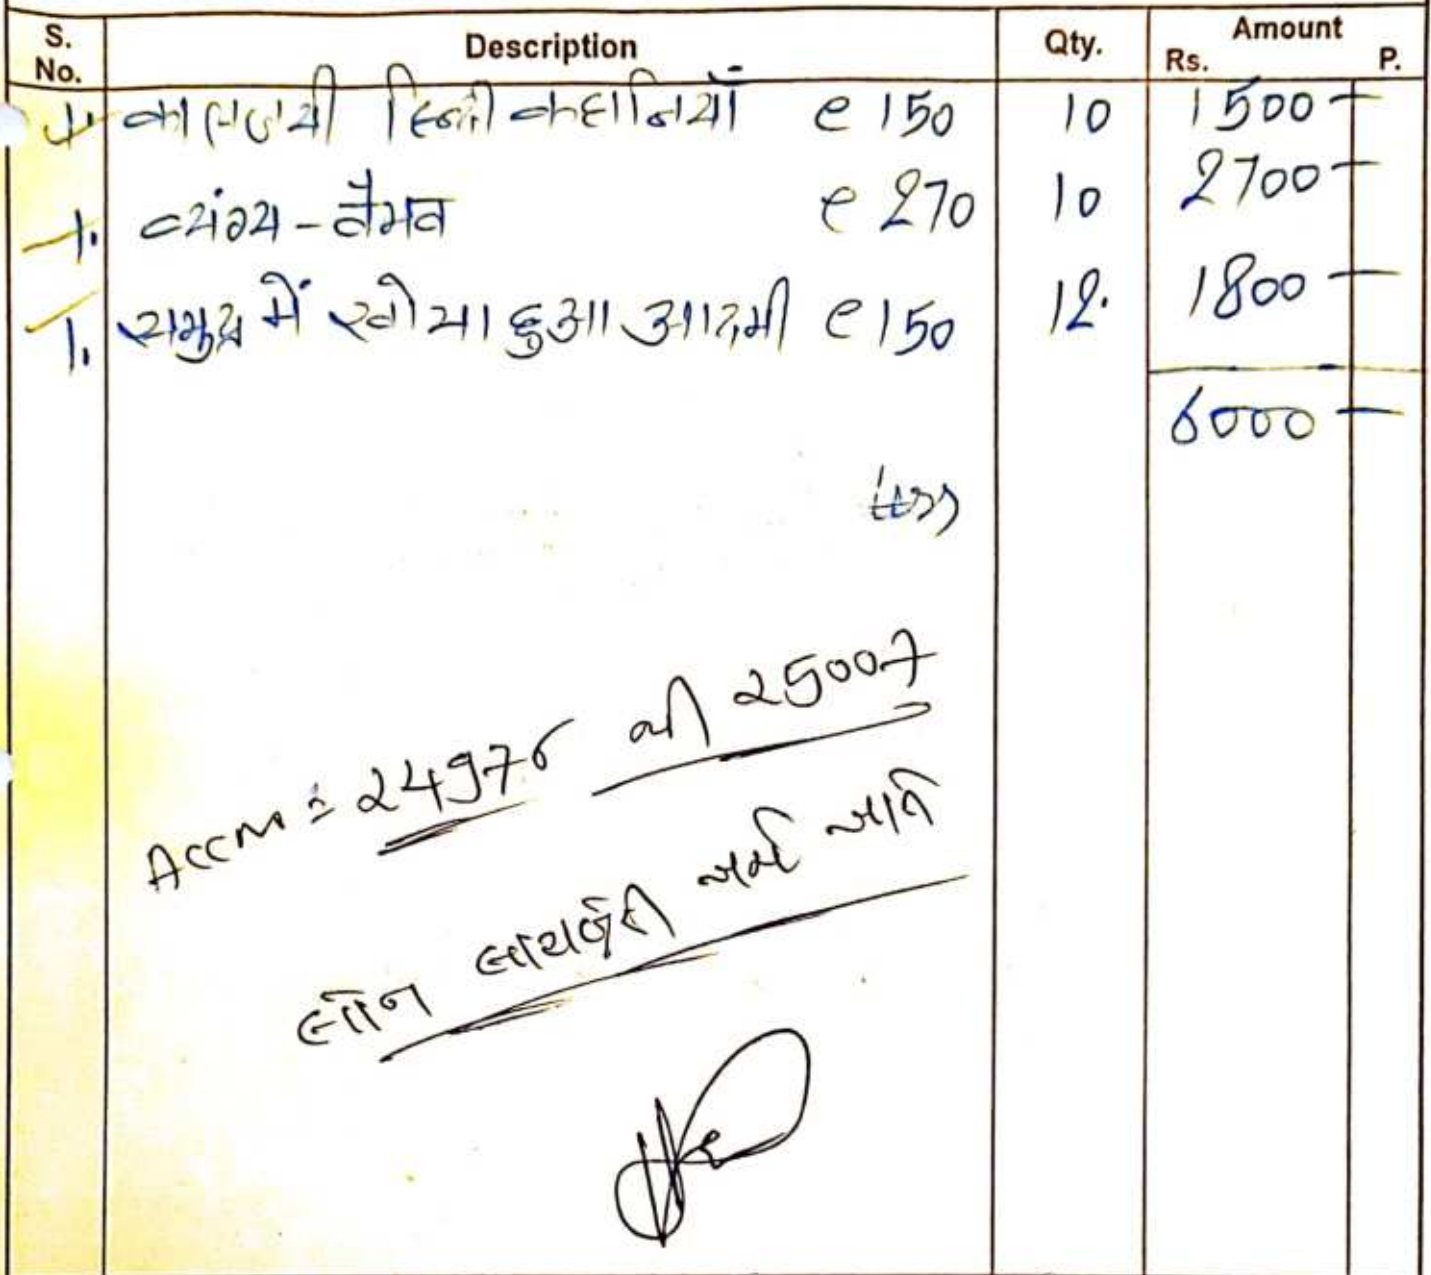 S. No. Description Qty. Amount Rs. P.
1. कालजयी हिन्दी कहानियाँ @ 150 10 1500 -
1. व्यंग्य - वैभव @ 270 10 2700 -
1. समुद्र में खोया हुआ आदमी @ 150 12. 1800 -
6000 -
Less
Accn : 24976 થી 25007
લોન લાયબ્રેરી ખર્ચ ખાતે